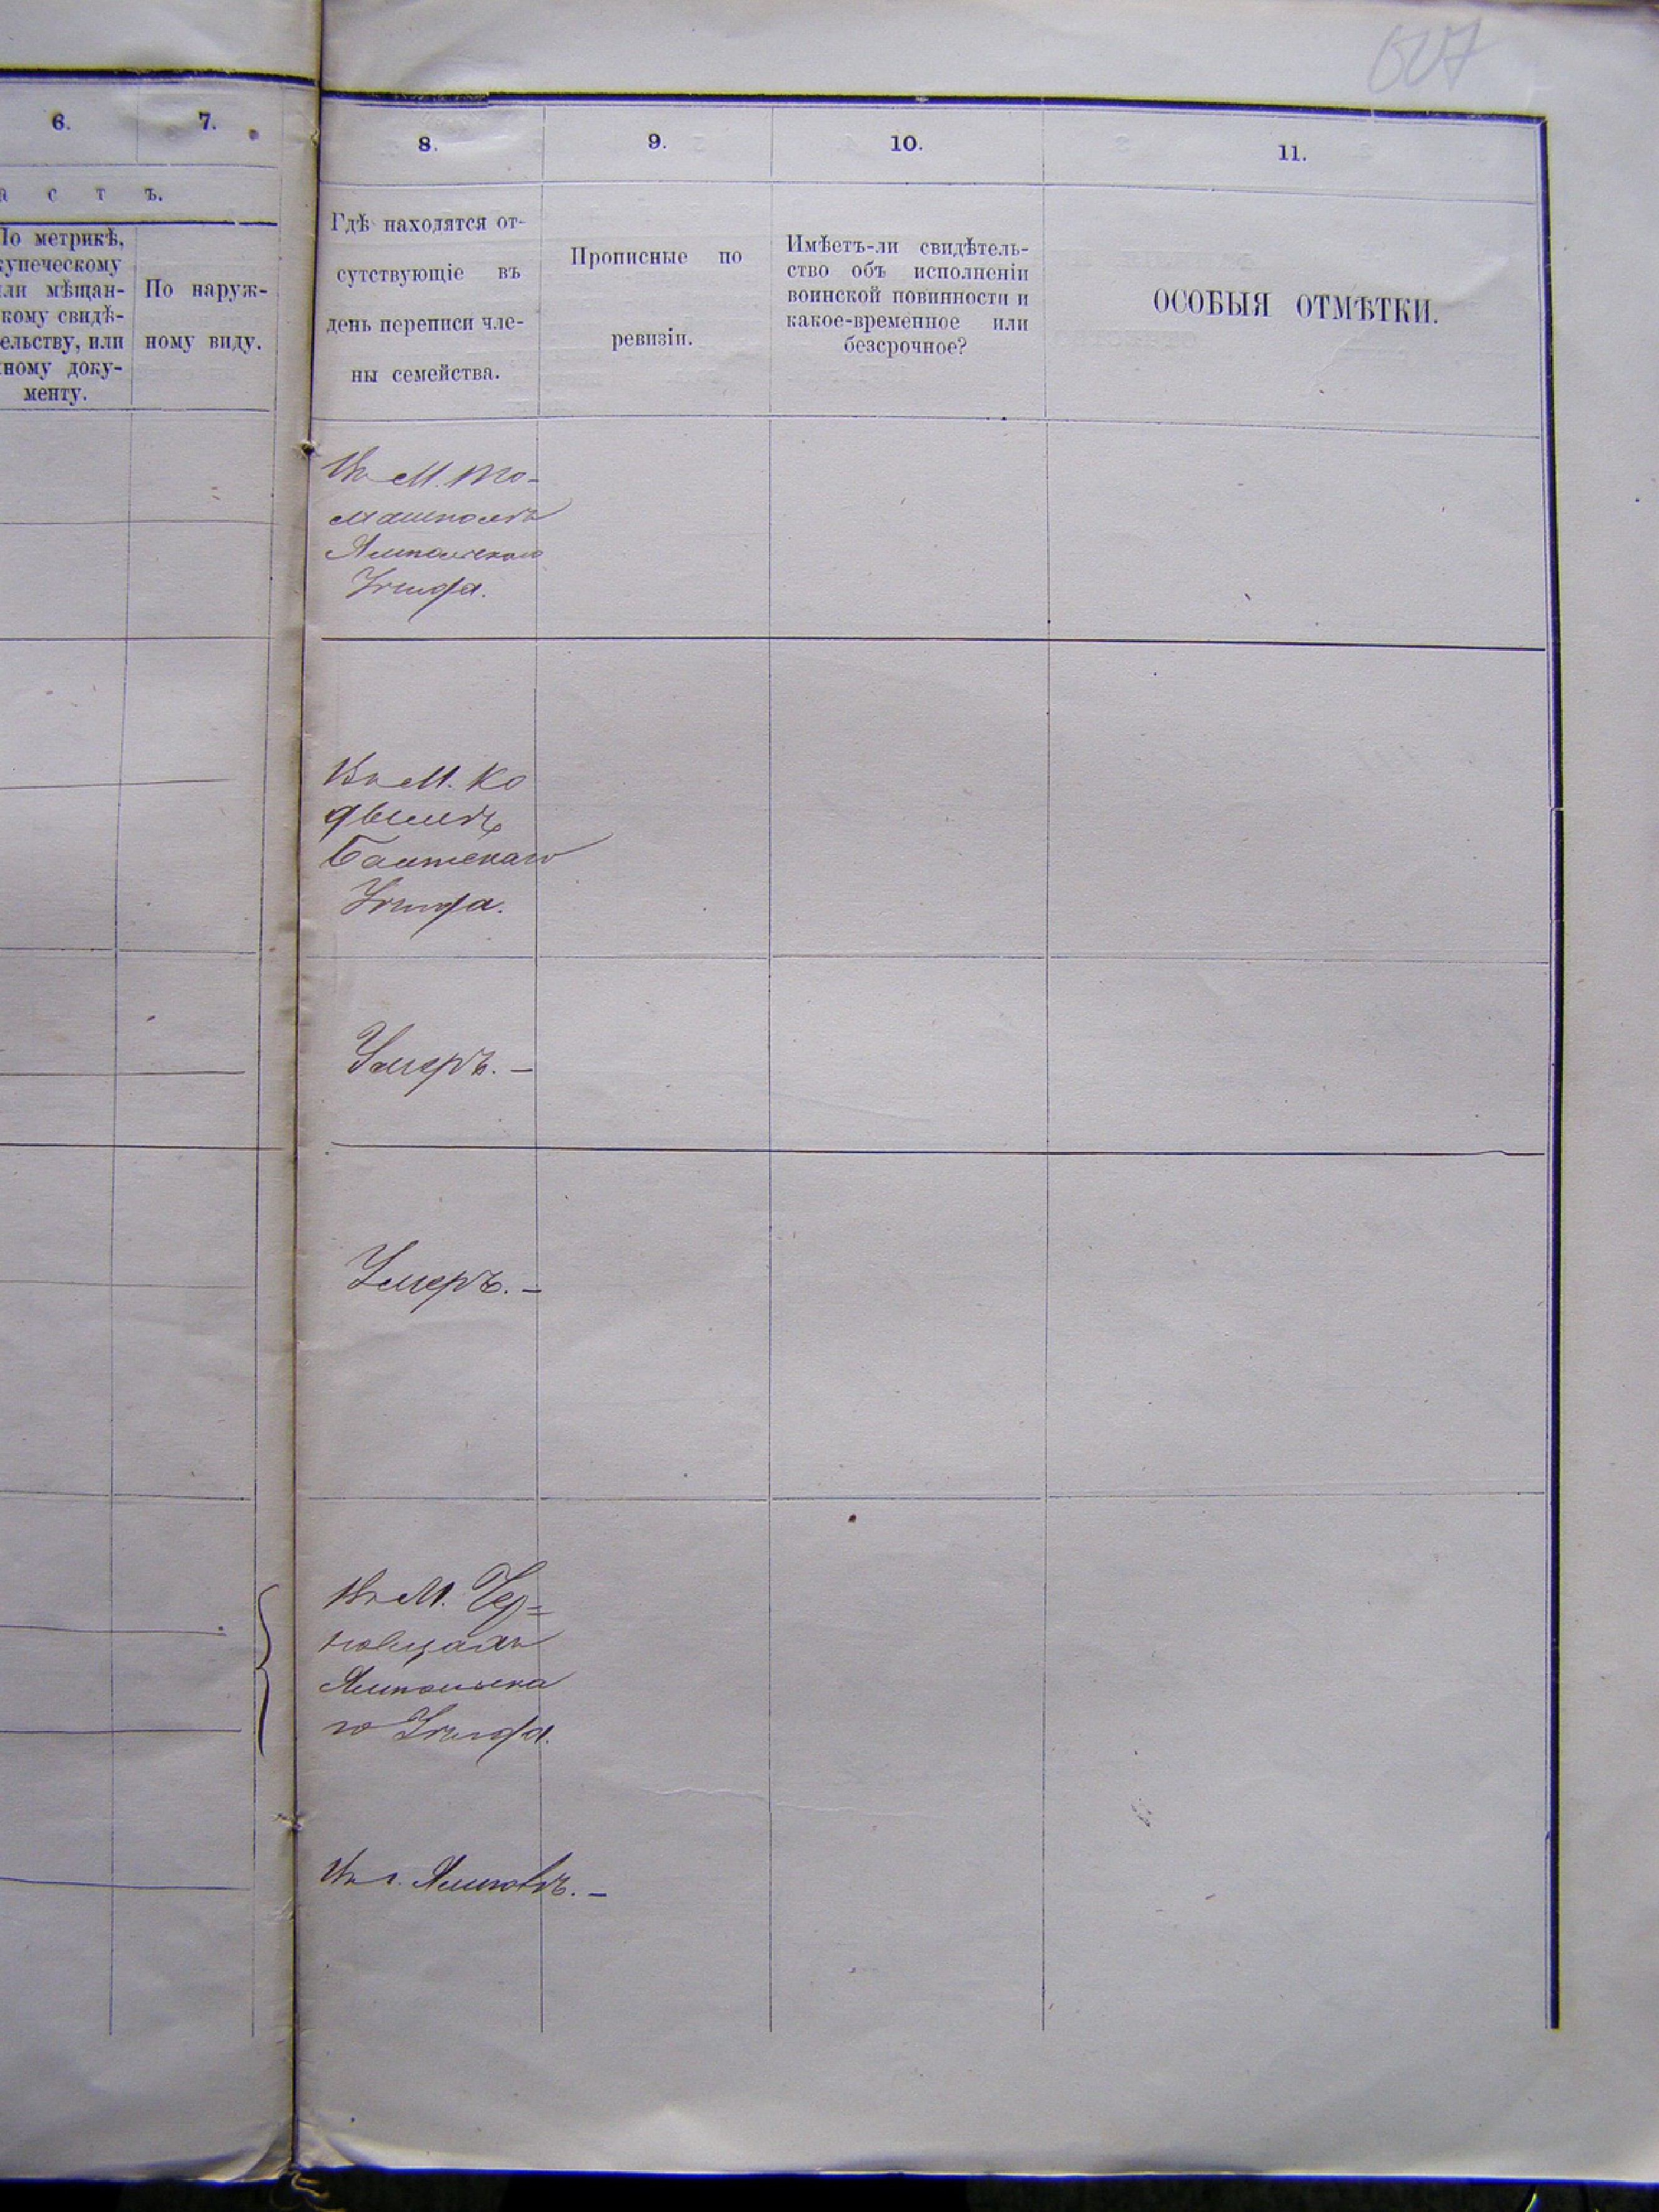 607
6.
7.
а с т ъ.
По метрикѣ,
купеческому
или мѣщан-
скому свидѣ-
тельству, или
иному доку-
менту.
По наруж-
ному виду.
8.
9.
10.
11.
Гдѣ находятся от-
сутствующіе въ
день переписи чле-
ны семейства.
Прописные по
ревизіи.
Имѣетъ-ли свидѣтель-
ство объ исполненіи
воинской повинности и
какое-временное или
безсрочное?
ОСОБЫЯ ОТМѢТКИ.
Въ М. То-
машполѣ
Ямпольскаго
Уѣзда.
Въ М. Ко
дымѣ
Балтскаго
Уѣзда.
Умеръ. —
Умеръ. —
Въ М. Чер=
новцахъ
Ямпольска
го Уѣзда.
Въ г. Ямполѣ. —